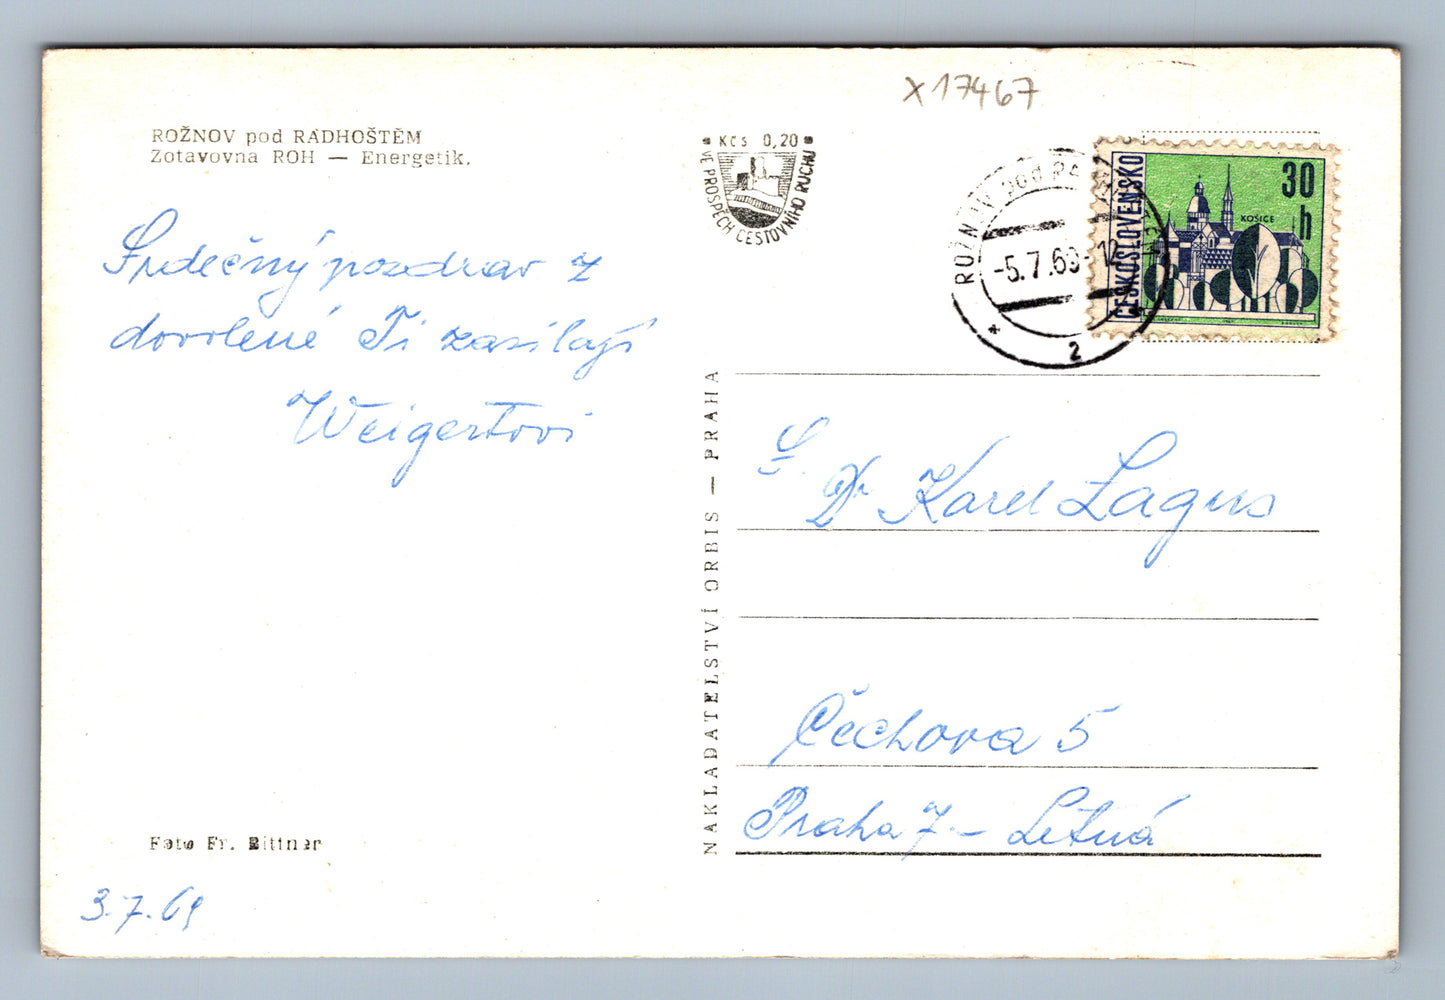 X17467
ROŽNOV pod RADHOŠTĚM
Zotavovna ROH — Energetik.
KČS 0,20
VE PROSPĚCH CESTOVNÍHO RUCHU
ROŽNOV pod RADH
-5.7.69-12
2
ČESKOSLOVENSKO
30 h
KOŠICE
Srdečný pozdrav z
dovolené Ti zasílají
Weigertovi
S.
Dr Karel Lagus
Čechova 5
Praha 7 - Letná
NAKLADATELSTVÍ ORBIS — PRAHA
Foto Fr. Bittner
3.7.69